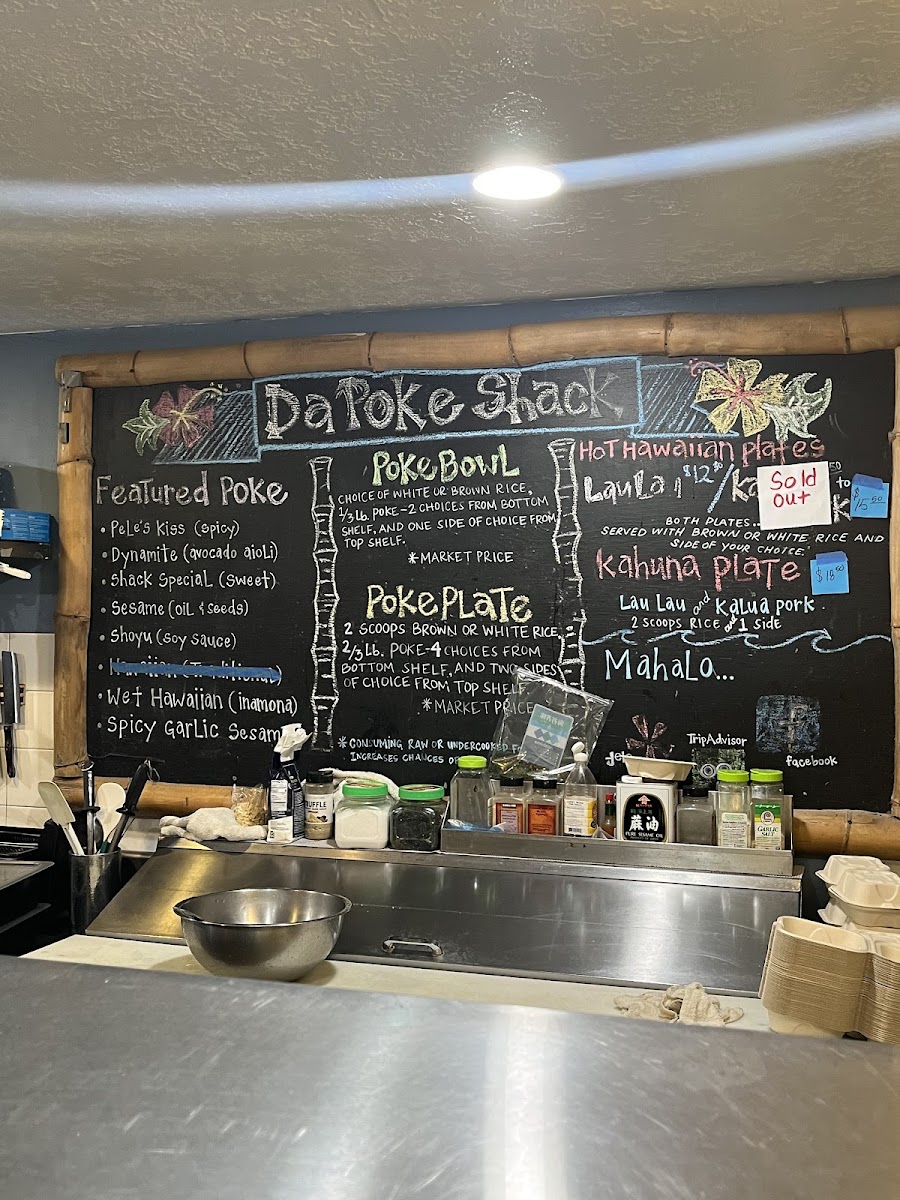 Da Poke Shack
Featured Poke
• Pele's Kiss (spicy)
• Dynamite (avocado aioli)
• Shack Special (sweet)
• Sesame (oil & seeds)
• Shoyu (soy sauce)
• Hawaiian (Traditional)
• Wet Hawaiian (inamona)
• Spicy Garlic Sesam
Poke Bowl
CHOICE OF WHITE OR BROWN RICE,
1/3 Lb. POKE - 2 CHOICES FROM BOTTOM
SHELF, AND ONE SIDE OF CHOICE FROM
TOP SHELF.
*MARKET PRICE
Poke Plate
2 SCOOPS BROWN OR WHITE RICE,
2/3 Lb. POKE - 4 CHOICES FROM
BOTTOM SHELF, AND TWO SIDES
OF CHOICE FROM TOP SHELF.
*MARKET PRICE
* CONSUMING RAW OR UNDERCOOKED
INCREASES CHANCES OF
Hot Hawaiian Plates
Lau Lau $12.50 / Ka
Sold
out
$15.50
BOTH PLATES...
SERVED WITH BROWN OR WHITE RICE AND
SIDE OF YOUR CHOICE.
Kahuna Plate
$18.00
Lau Lau and Kalua Pork
2 scoops Rice and 1 side
Mahalo...
TripAdvisor
facebook
麻油
PURE SESAME OIL
GARLIC
SALT